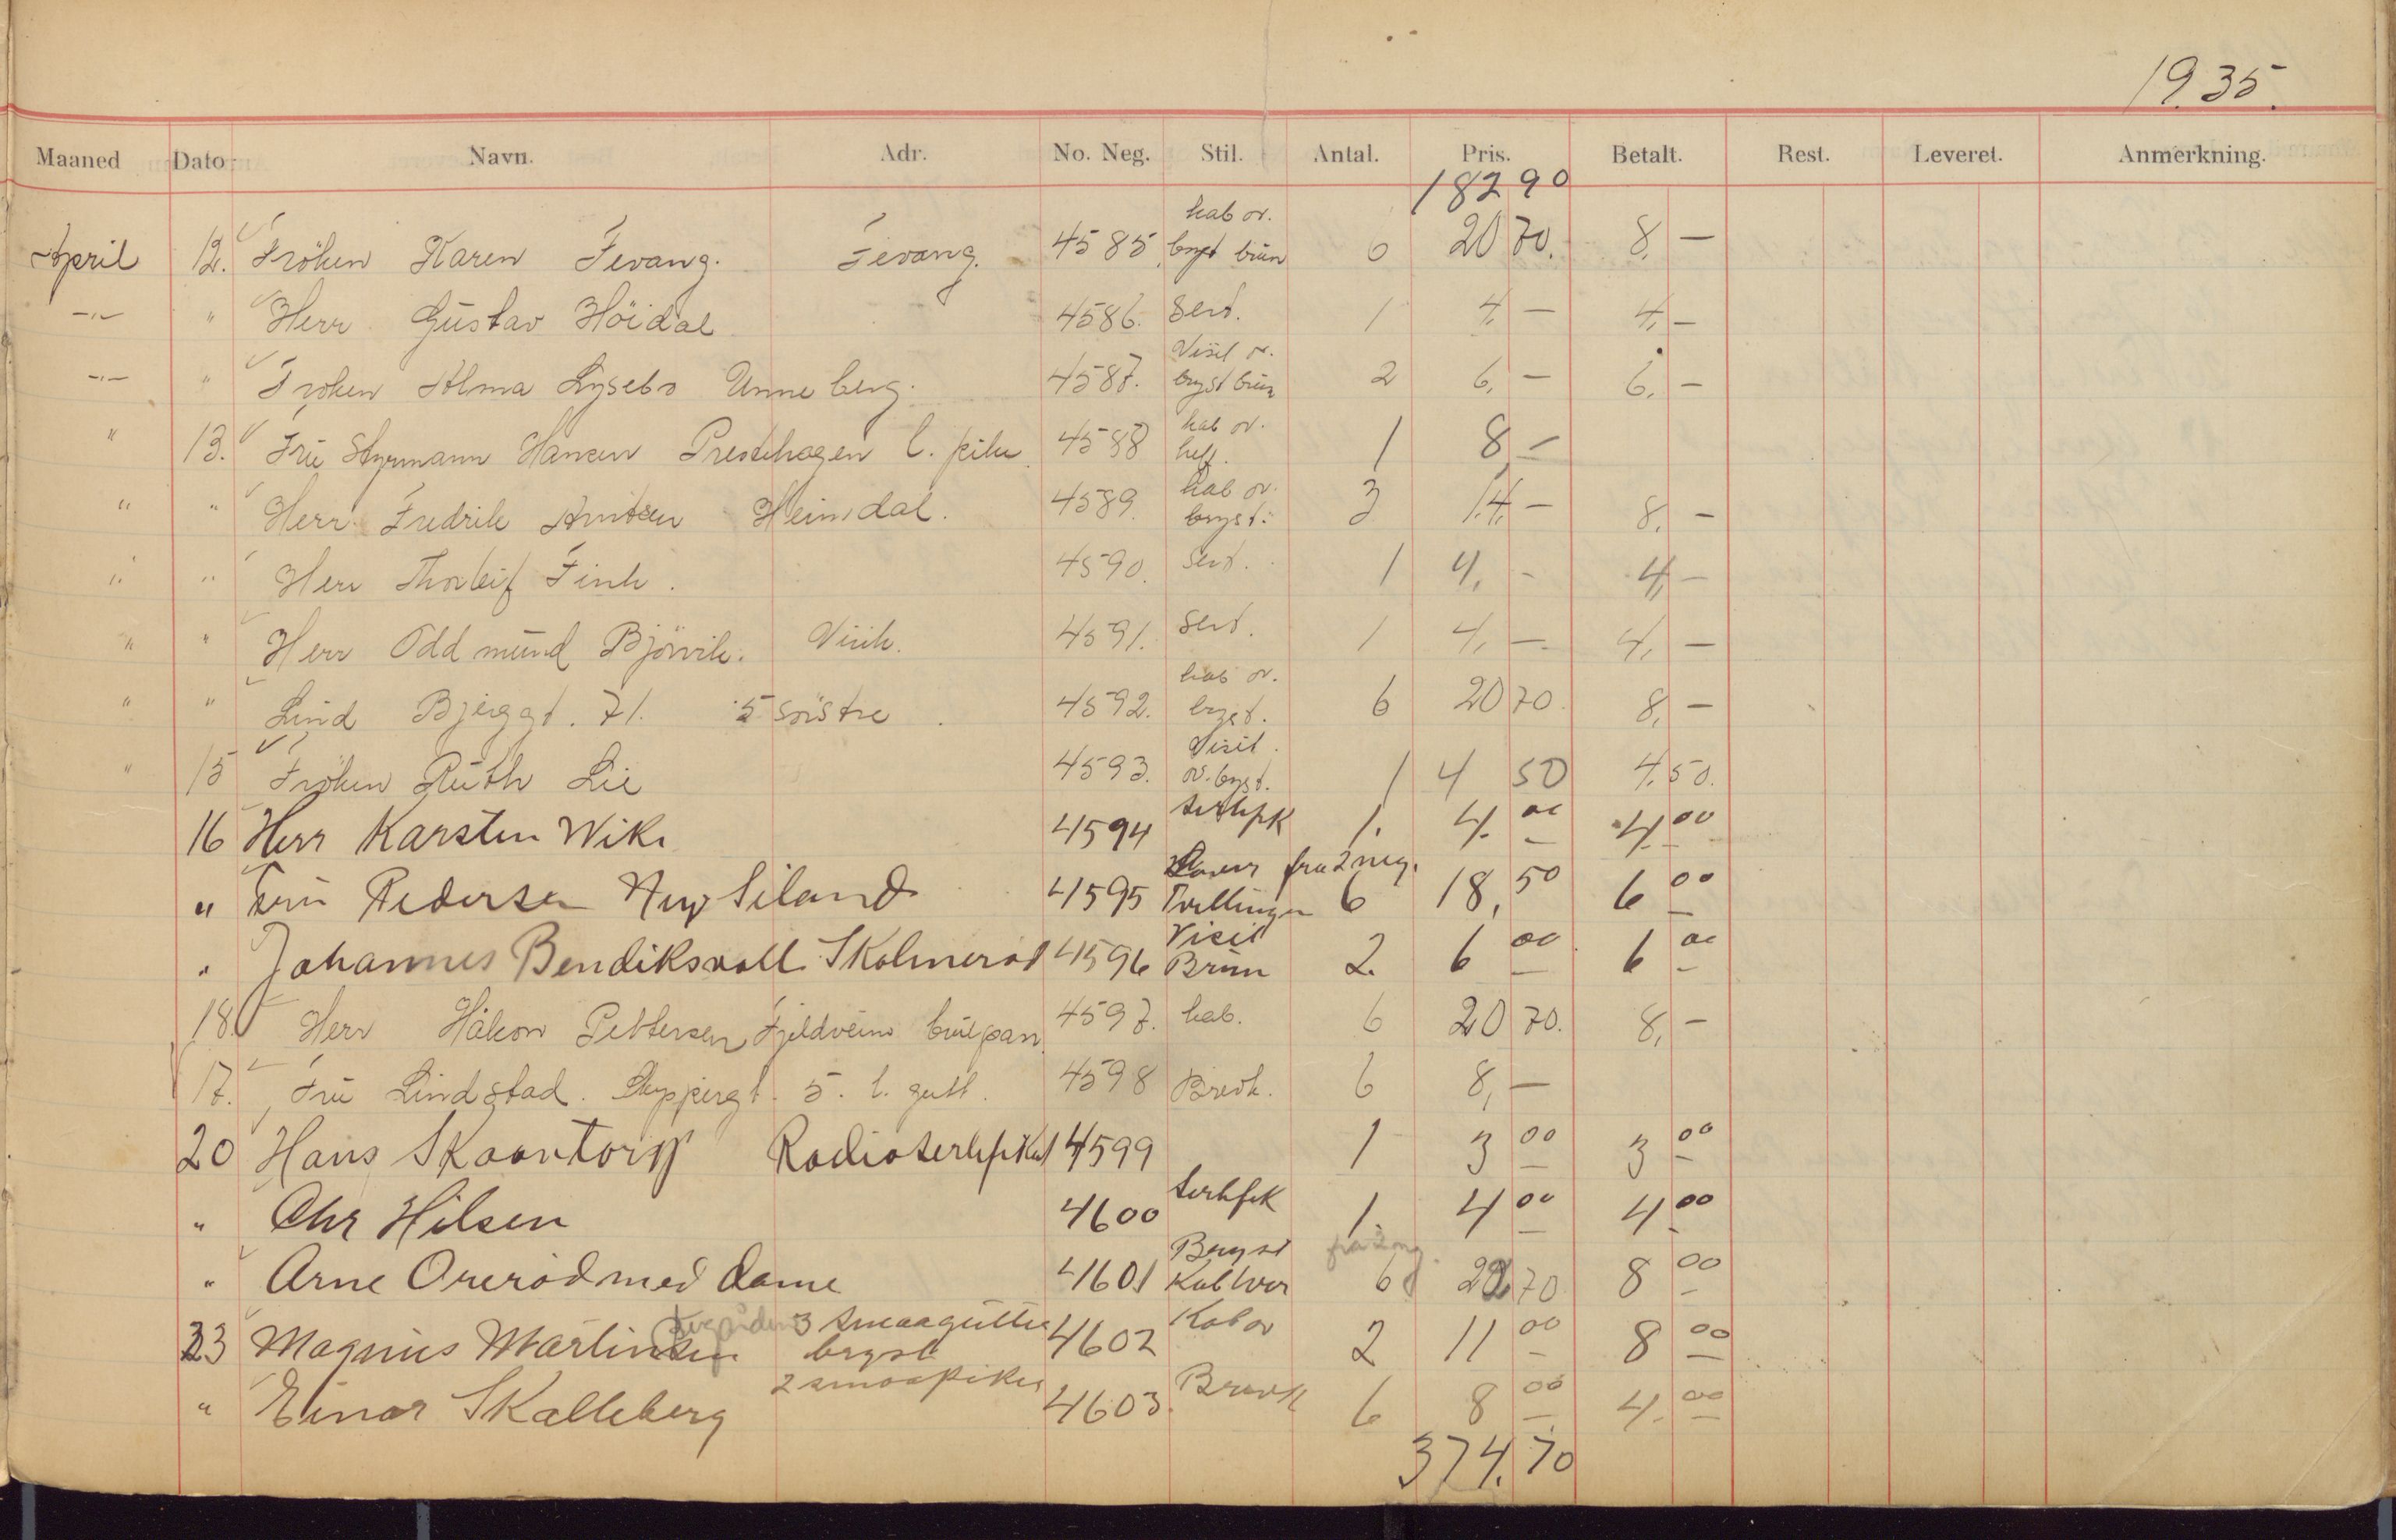 1935.
Maaned Dato Navn. Adr. No. Neg. Stil. Antal. Pris. Betalt. Rest. Leveret. Anmerkning.
182 90
kab ov.
April 12. Fröken Karen Fevang. Fevang. 4585 bryst brün 6 20 70. 8, —
—"— " Herr Gustav Höidal 4586. Sert. 1 4, — 4, —
Visit ov.
—"— " Froken Alma Lysebo Unneberg. 4587. bryst brün 2 6, — 6, —
kab ov.
" 13. Frü Styrmann Hansen Prestehagen l. pike 4588 helf. 1 8 —
kab ov.
" " Herr Fredrik Arntsen Heimdal. 4589. bryst. 3 14, — 8, —
" " Herr Thorleif Fink. 4590. Sert. 1 4, - 4, —
" " Herr Oddmund Bjövik. Virik. 4591. Sert. 1 4, — 4, —
kab ov.
" " Lind Bjerggt. 71. 5 söstre. 4592. bryst. 6 20 70 8, —
Visit.
" 15 Fröken Ruth Lie 4593. ov. bryst. 1 4 50 4, 50.
16 Herr Karsten Wike 4594 sertifik 1. 4. 00 4 00
fra 2 neg.
" Pedersen 4595 Tvillinger 6 18, 50 6 00
Visit
" Johannes Bendiksvoll Skolmerød 4596 Brün 2. 6 00 6 00
18. Herr Håkon Pettersen Fjeldveim 4597. kab. 6 20 70. 8, —
17. Frü Lindstad. 5. l. gutt. 4598 Brevk. 6 8, —
20 Hans Skaantorp Radiosertifikat 4599 1 3 00 3 00
" Chr Hilsen 4600 sertifik 1. 4 00 4 00
Bryst fra 2 neg.
" Arne Orerød med dame 4601 Kab 6 22 70 8 00
3 smaagutter Kab ov
23 Magnus Martinsen bryst 4602 2 11 00 8 00
2 smaapiker
" Einar Skalleberg 4603. Brevk 6 8 00 4. 00
374. 70